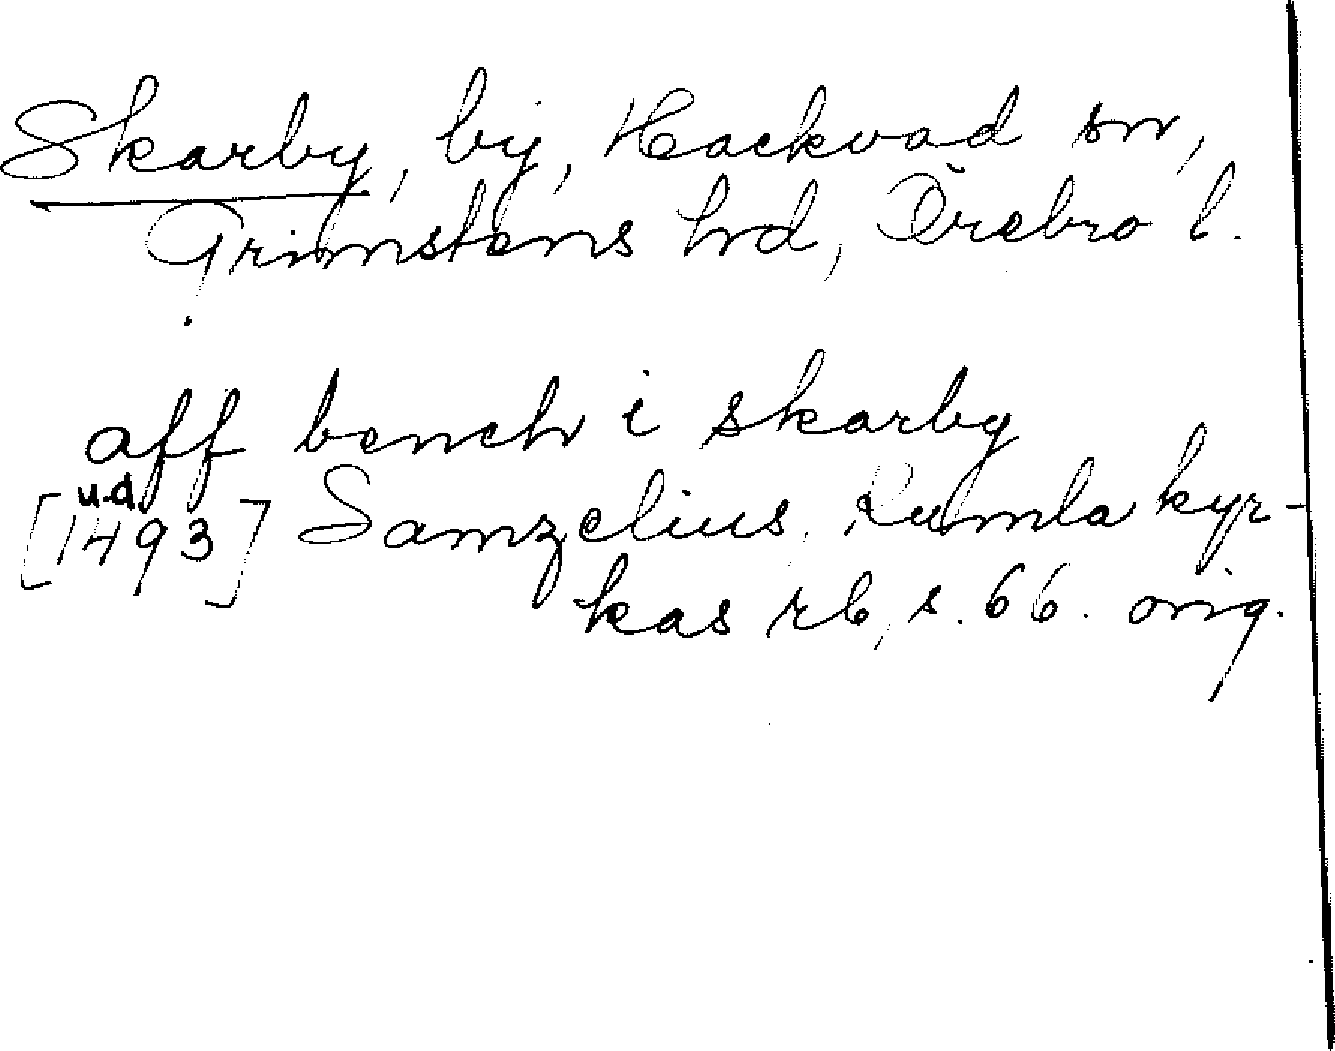 Skarby, by, Hackvad sn,
Grimstens hd, Örebro l.
aff bench i skarby
u.d.
[1493] Samzelius, Kumla kyr-
kas rb, s. 66. orig.